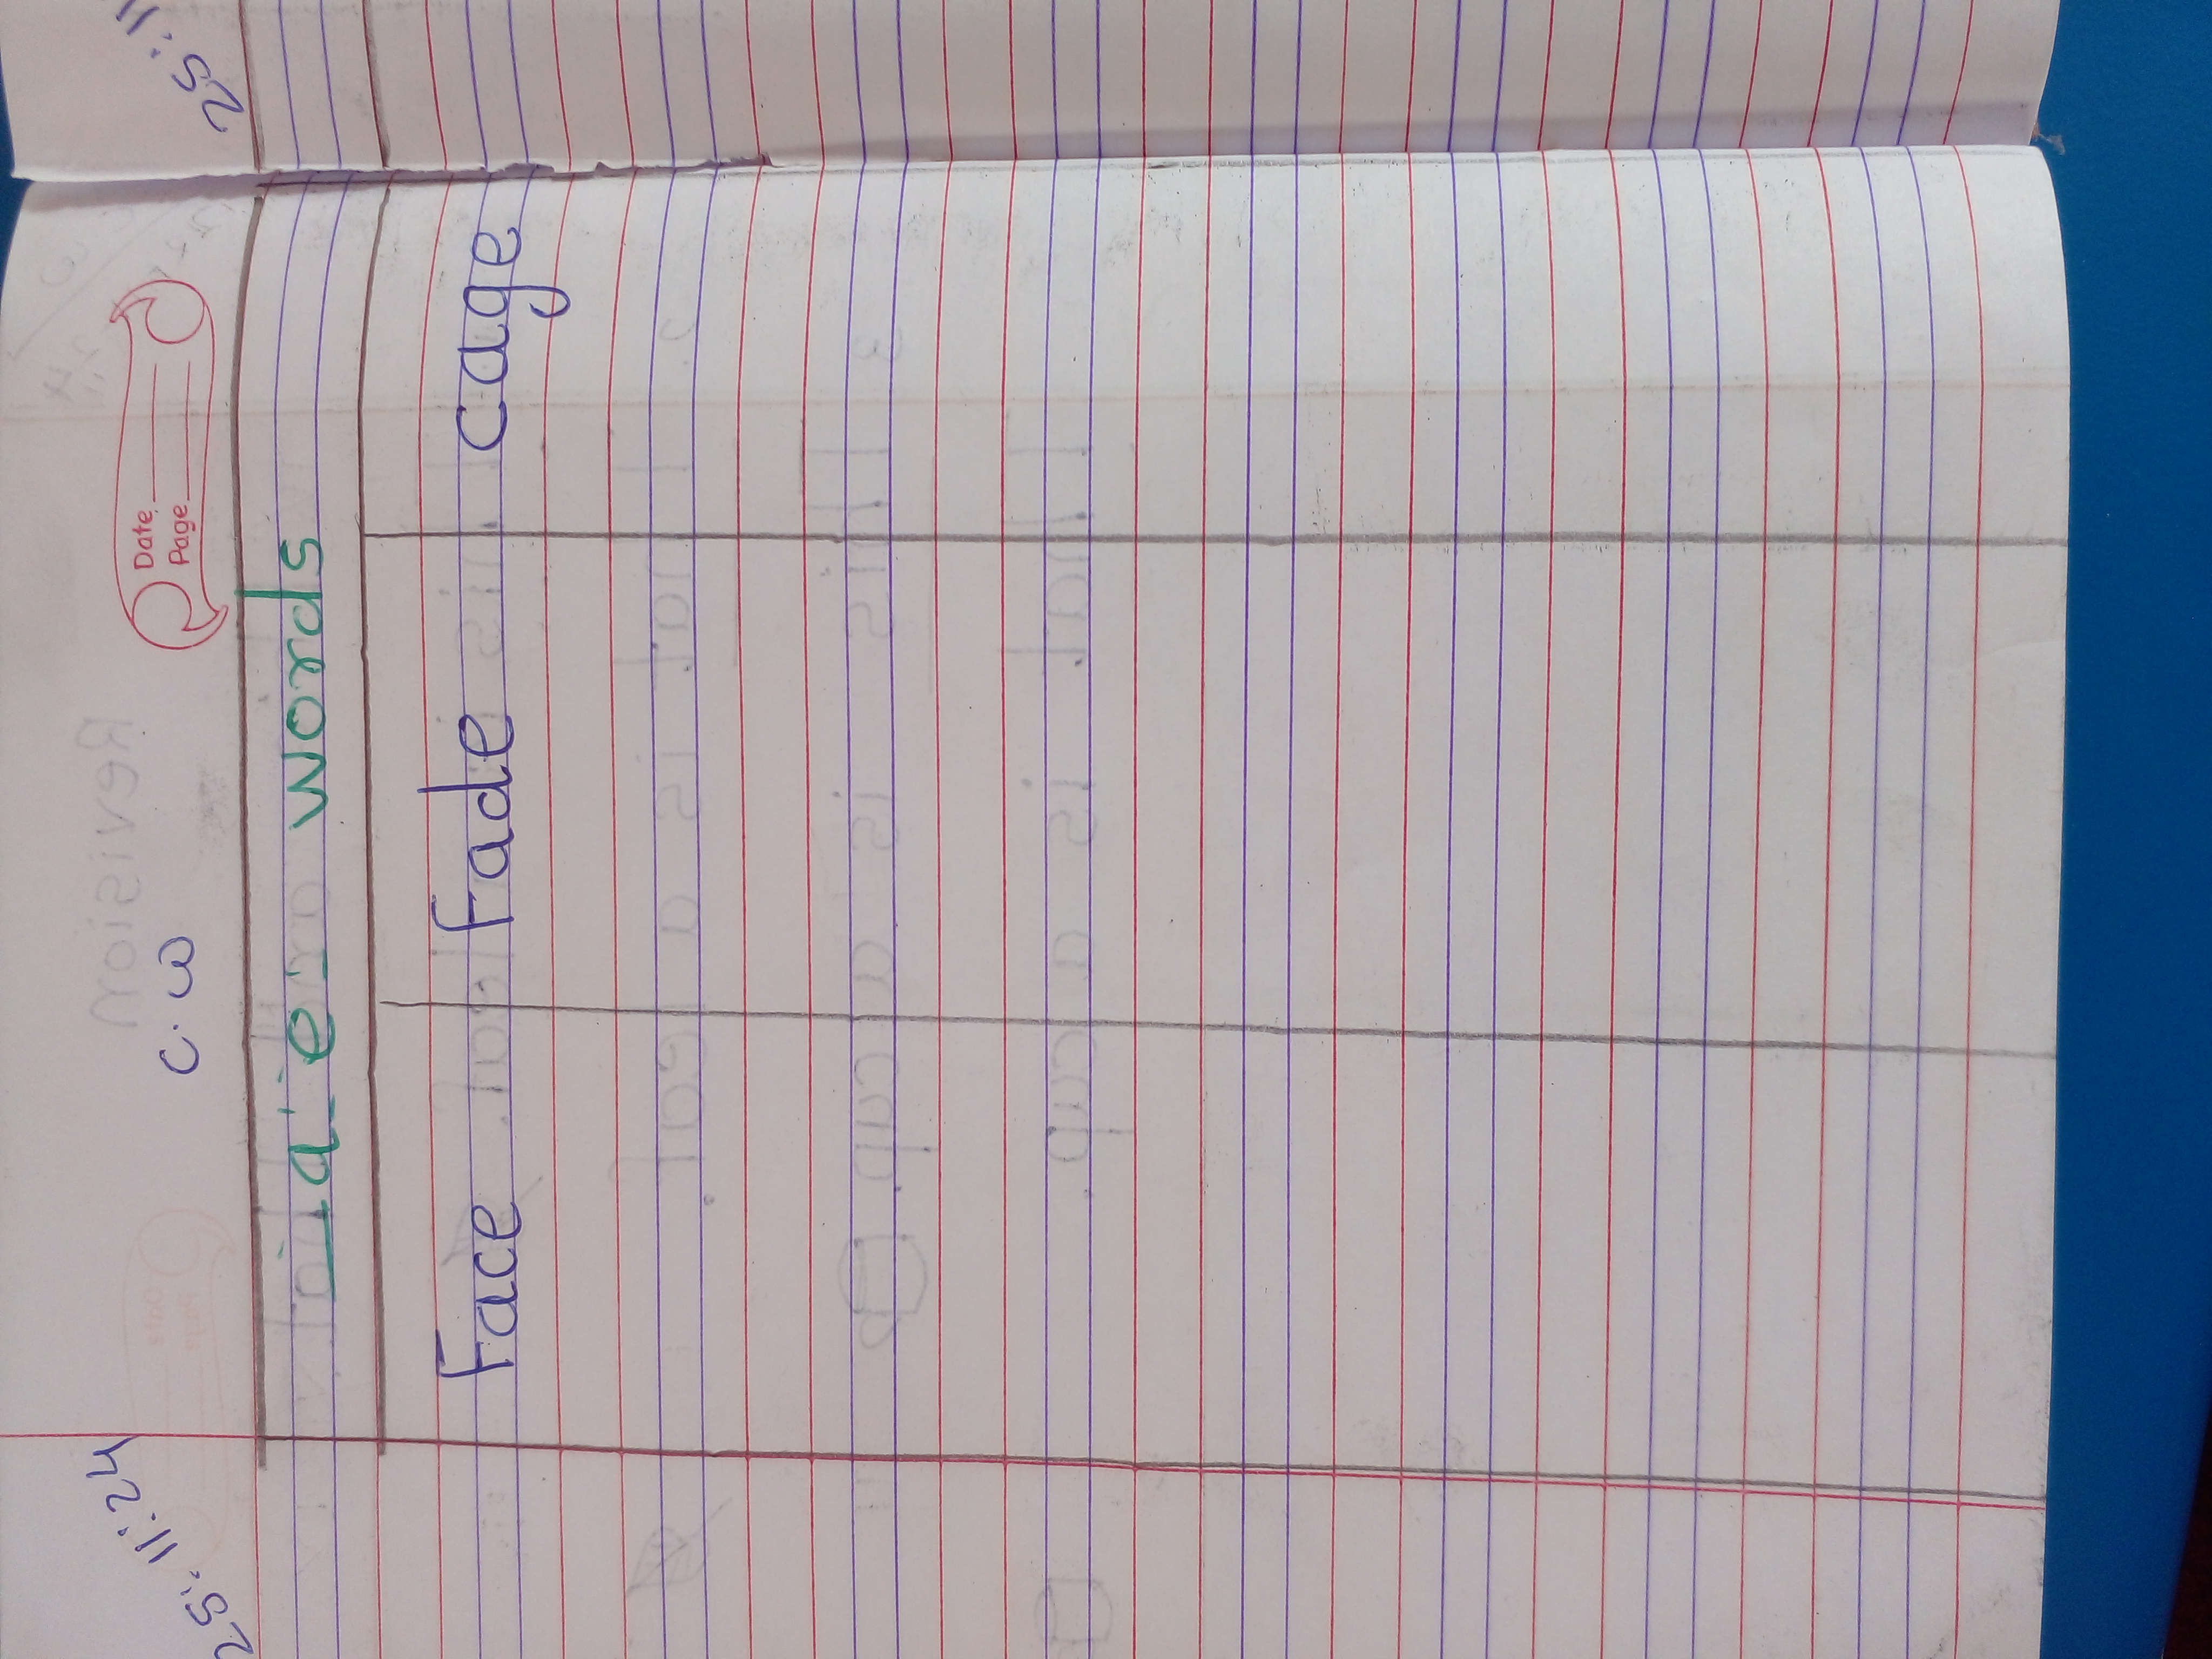 25:11:24
C.W
Date
Page
_a_e words
Face Fade cage
25:11